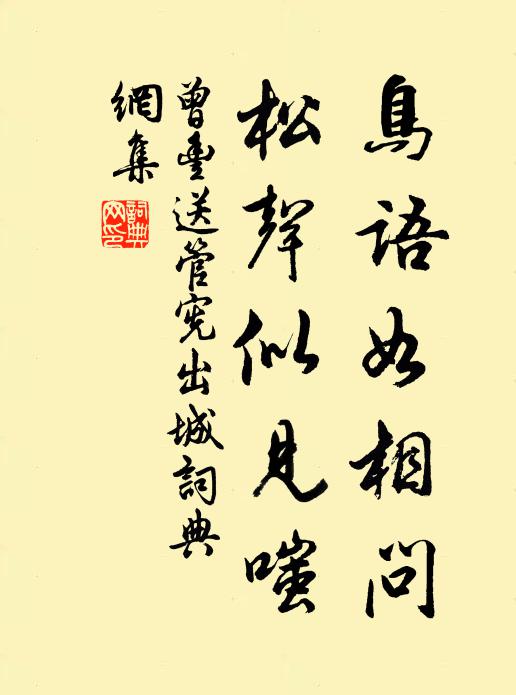 鳥語如相問
松聲似見嗤
曾豐送管憲出城詞典
網集
詞典
网印